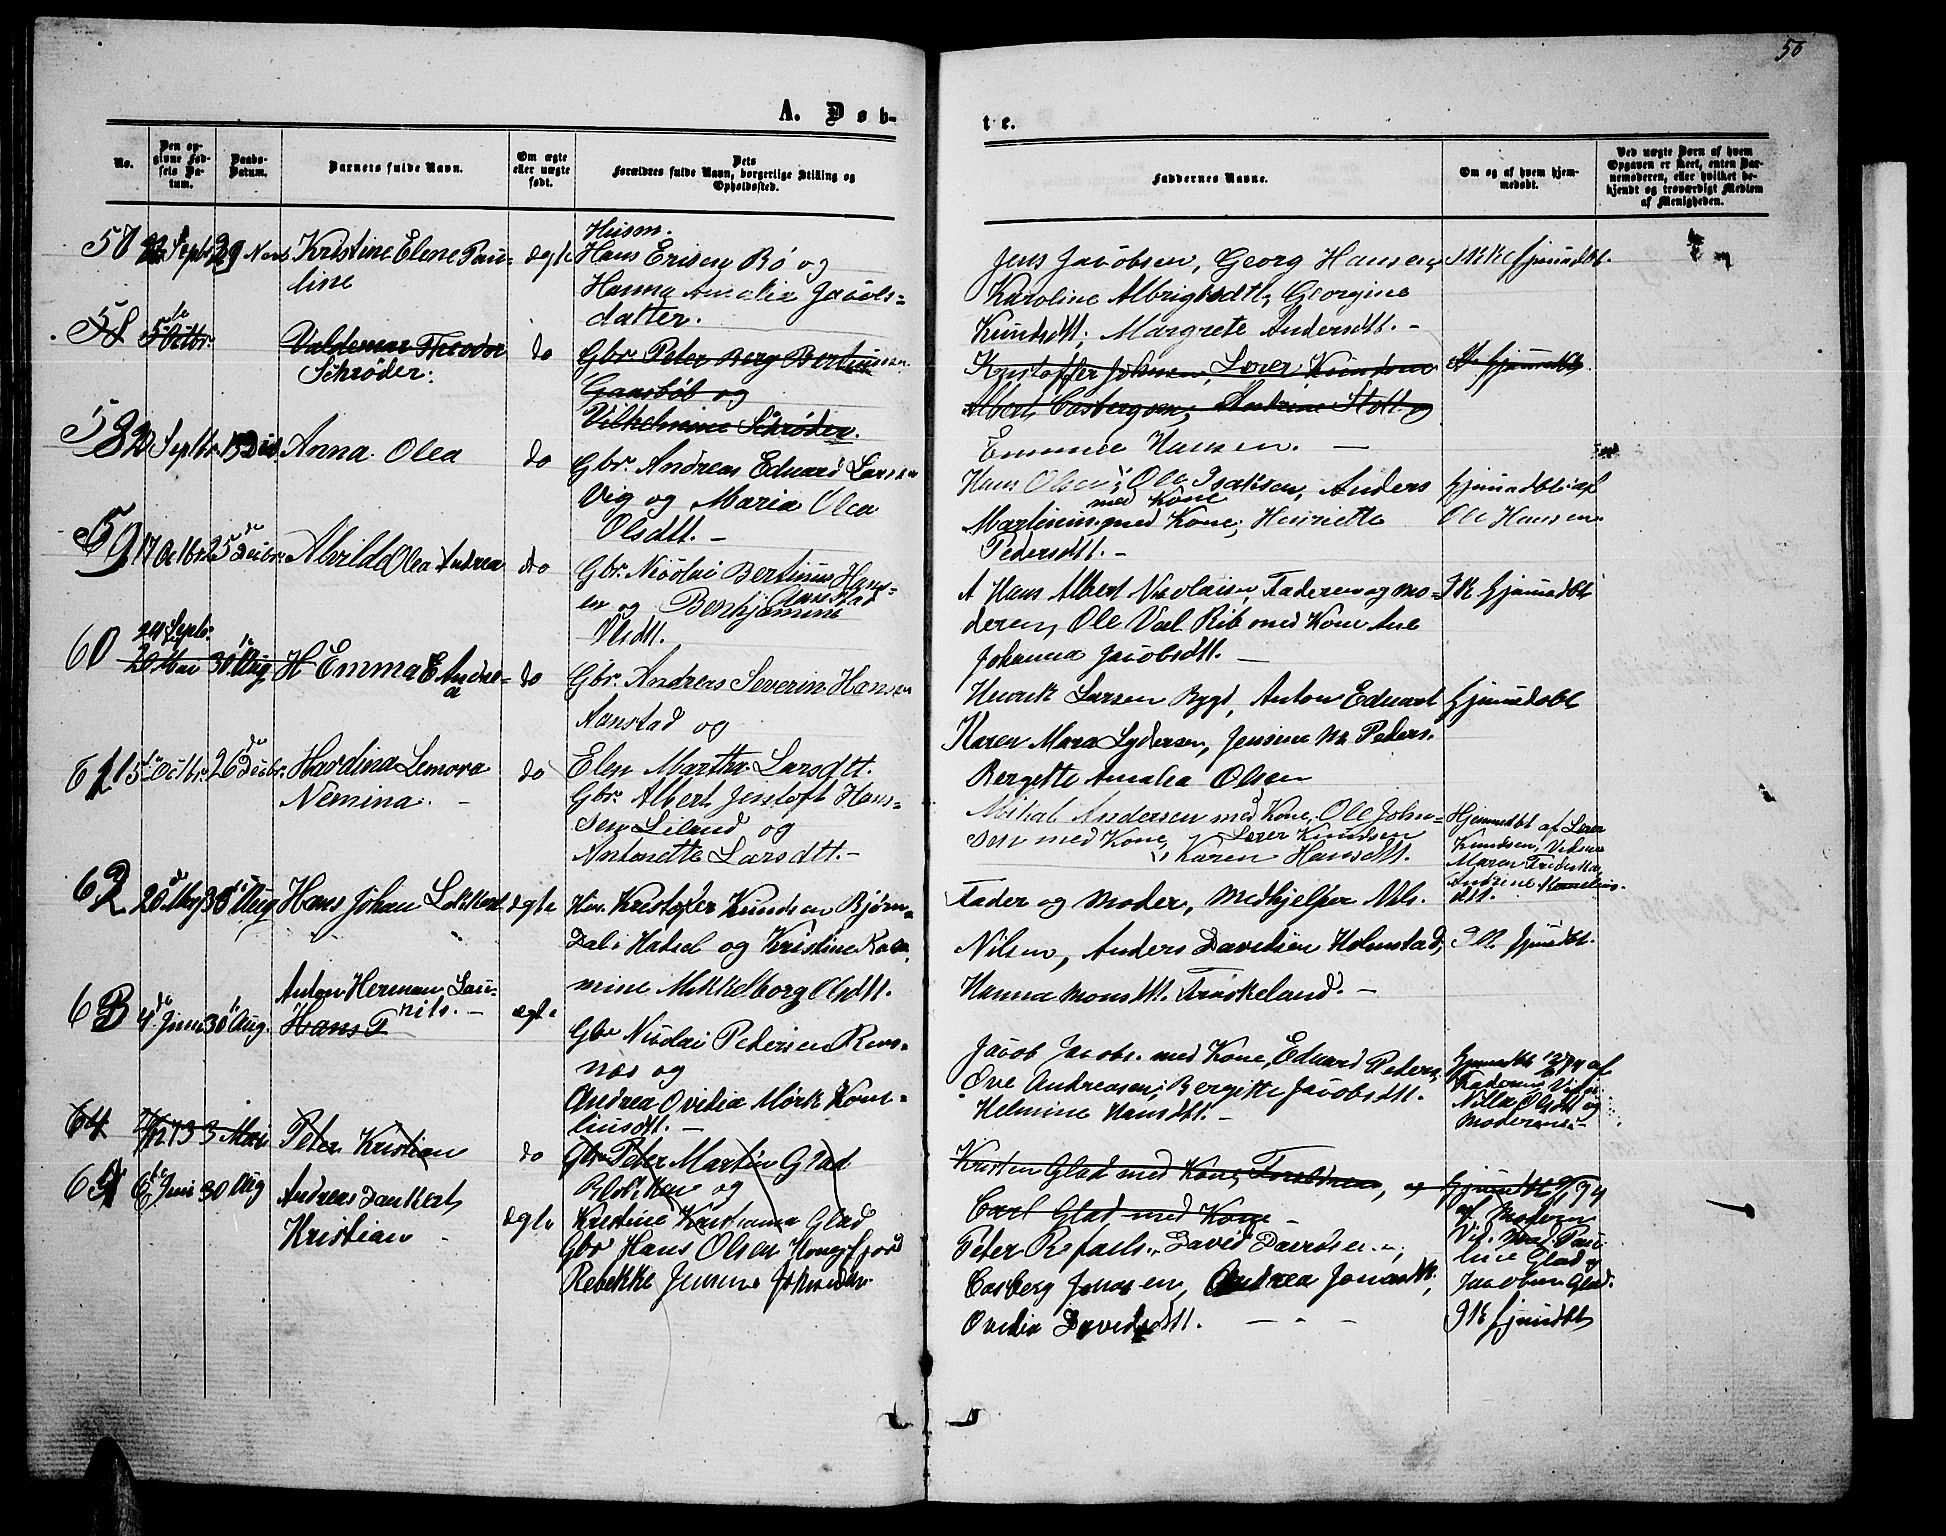 56
A. Døb-
te.
No.
Den opgivne Fødsels Datum.
Daabs-Datum.
Barnets fulde Navn.
Om ægte eller uægte født.
Dets Forældres fulde Navn, borgerlige Stilling og Opholdssted.
Faddernes Navne.
Om og af hvem hjemmedøbt.
Ved uægte Børn af hvem Opgaven er skeet, enten Barnemoderen, eller hvilket bekjendt og troværdigt Medlem af Menigheden.
57 22 Septbr 29 Novb Kristine Elene Pau-
line
ægte
Husm.
Hans Ersen Bø og
Hanna Amalia Jacobs-
datter.
Jens Jacobsen, Georg Hansen,
Karoline Albrigtsdtt, Georgine
Knudsdtt, Margrete Andersdtt. -
IKKE hjemdbt.
58 5 Octbr.
Valdemar Theodor
Schrøder.
do
Gbr. Peter Berg Bertinusen
Gaasbøb og
Vilhelmine Schrøder.
Kristoffer Johnsen, Lorer Knudsen
Albert Casbergsen, Andrine Stolt og
Emmele Hansen. -
hjemdbt
58 20 Septbr. 13 Dcb. Anna Olea
do
Gbr. Andreas Eduard Larsen
Vig og Maria Olea
Olsdtt. -
Hans Olsen, Ole Isaksen, Anders
med Kone
Martinus. med Kone, Henriette
Pedersdtt. -
Hjemdbt. af
Ole Hansen
59 17 Octbr. 25 Decbr. Alvilde Olea Andrea
do
Gbr. Nicolai Bertinus Hans-
en Aanstad
og Benhjamine
Olsdtt.
A Hans Albert Nicolaisen, Faderen og mo-
deren, Ole Val Rib med Kone Ane
Johanna Jacobsdtt. -
IK hjemdbt
60 24 Septb.
20 Mai 30 Aug. H Emma E Andre-
a
do
Gbr. Andreas Severin Hansen
Aanstad og
Elen Martha Larsdtt.
Henrik Larsen Bygd, Anton Eduart
Karen Mara Lydersen, Jensine M. Peders.
Bergette Amalia Olsen
hjemdøbt
61 15 Octbr. 26 Decbr. Hardina Lenora
Nemina. -
do
Gbr. Albert Jentoft Hans-
sen Leland og
Antonette Larsdtt. -
Mikal Andersen med Kone, Ole John-
sen med Kone, Lorer Knudsen
Karen Hansdtt.
Hjemmedbt af Lorer
Knudsen, Vidner
Maren Frederikke
Andrine Kornelius-
dtt.
62 20 May 30 Aug Hans Johan Lokkert
ægte
Hm. Kristofer Knudsen Bjørn-
dal i Hadsel og Kristine Karo-
mine Mikkelborg Olsdtt.
Fader og Moder, Medhjelper Nils.
Nilsen, Anders Davidsen Holmstad,
Hanna Monsdtt. Friskeland. -
IK hjemdbt.
63 4 Juni 30 Aug. Anton Herman Lau-
nits. -
Hans T
ægte
Gbr Nicolai Pedersen Rens-
næs og
Andrea Ovidia Mørk Korne-
liusdt. -
Jacob Jacobs. med Kone, Eduard Peders.
Ove Andreasen, Bergitte Jacobsdtt.
Helmine Hansdtt. -
hjemdbt 12/6 74 af
Faderen, Vidn.
Nilla Olsdt og
Moderens. -
64 73 3 Mai Peter Kristian
do
Gbr Peter Martin Glad
Blokken og
Kristine Kristianna Glad
Kristen Glad med Kone, Forældrene, og
Carl Glad med Kone -
hjemdbt 74
af Moderen
Vid. Mad. Pau-
line Glad og
Jacobine Glad.
64 6 Juni 30 Aug Andreas Dankert
Kristian -
ægte
Gbr Hans Olsen Kongsfjord
Rebekke Jensine Johnsdtr
Peter Rafaels., David Davidsen,
Casberg Jonasen, Andrea Jonasdt.
Ovedia Davidsdtt. - " -
IK hjemdbt